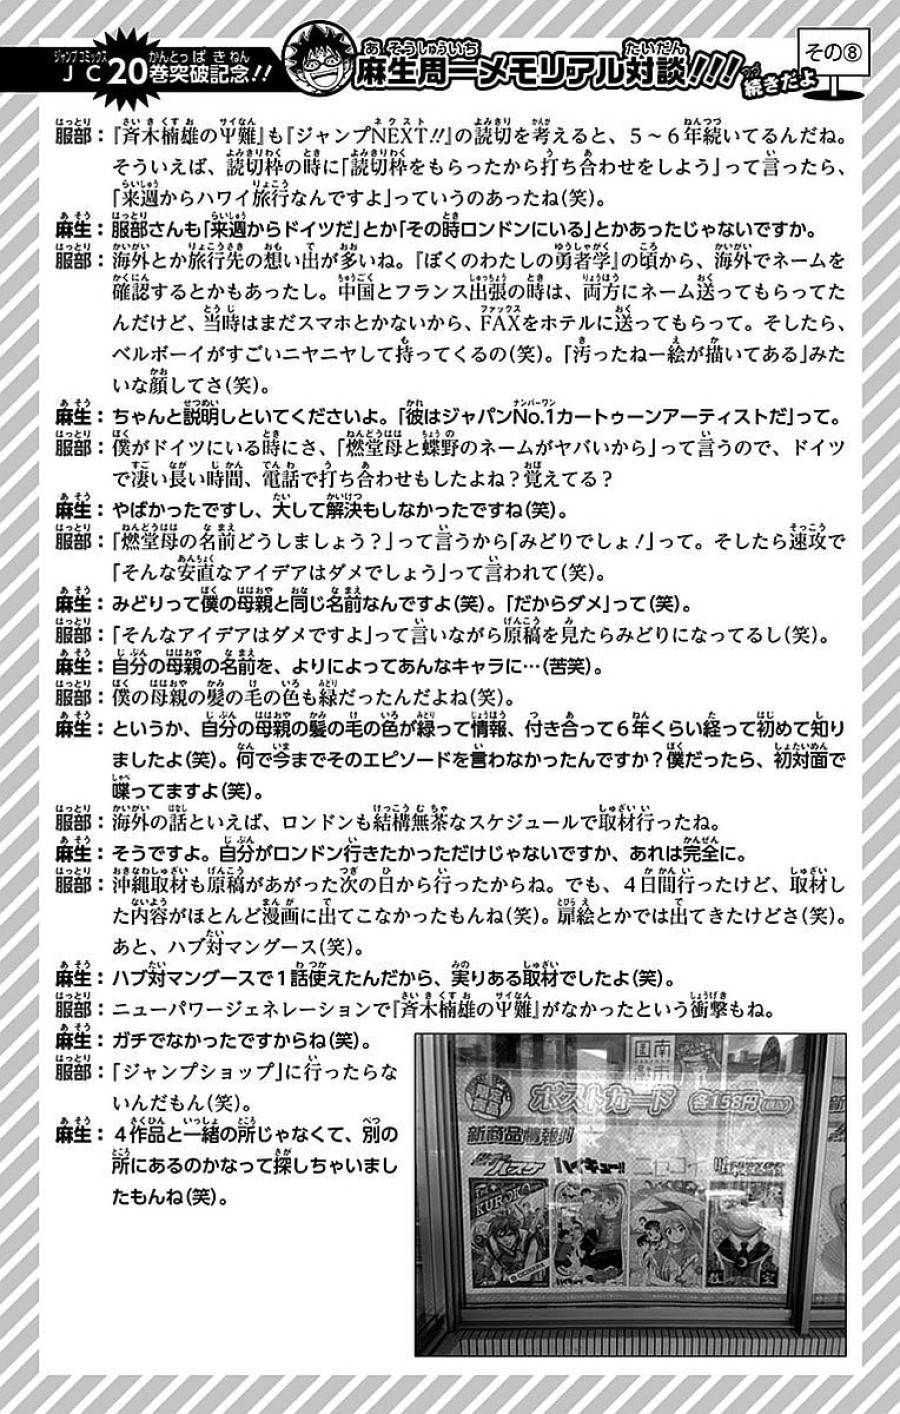 JC20巻突破記念!!
麻生周一メモリアル対談!!!
続きだよ
その⑧
服部：『斉木楠雄のΨ難』も『ジャンプNEXT!!』の読切を考えると、５～６年続いてるんだね。
そういえば、読切枠の時に「読切枠をもらったから打ち合わせをしよう」って言ったら、
「来週からハワイ旅行なんですよ」っていうのあったね（笑）。
麻生：服部さんも「来週からドイツだ」とか「その時ロンドンにいる」とかあったじゃないですか。
服部：海外とか旅行先の想い出が多いね。『ぼくのわたしの勇者学』の頃から、海外でネームを
確認するとかもあったし。中国とフランス出張の時は、両方にネーム送ってもらってた
んだけど、当時はまだスマホとかないから、FAXをホテルに送ってもらって。そしたら、
ベルボーイがすごいニヤニヤして持ってくるの（笑）。「汚ったねー絵が描いてある」みた
いな顔してさ（笑）。
麻生：ちゃんと説明しといてくださいよ。「彼はジャパンNo.1カートゥーンアーティストだ」って。
服部：僕がドイツにいる時にさ、「燃堂母と蝶野のネームがヤバいから」って言うので、ドイツ
で凄い長い時間、電話で打ち合わせもしたよね？覚えてる？
麻生：やばかったですし、大して解決もしなかったですね（笑）。
服部：「燃堂母の名前どうしましょう？」って言うから「みどりでしょ！」って。そしたら速攻で
「そんな安直なアイデアはダメでしょう」って言われて（笑）。
麻生：みどりって僕の母親と同じ名前なんですよ（笑）。「だからダメ」って（笑）。
服部：「そんなアイデアはダメですよ」って言いながら原稿を見たらみどりになってるし（笑）。
麻生：自分の母親の名前を、よりによってあんなキャラに…（苦笑）。
服部：僕の母親の髪の毛の色も緑だったんだよね（笑）。
麻生：というか、自分の母親の髪の毛の色が緑って情報、付き合って６年くらい経って初めて知り
ましたよ（笑）。何で今までそのエピソードを言わなかったんですか？僕だったら、初対面で
喋ってますよ（笑）。
服部：海外の話といえば、ロンドンも結構無茶なスケジュールで取材行ったね。
麻生：そうですよ。自分がロンドン行きたかっただけじゃないですか、あれは完全に。
服部：沖縄取材も原稿があがった次の日から行ったからね。でも、４日間行ったけど、取材し
た内容がほとんど漫画に出てこなかったもんね（笑）。扉絵とかでは出てきたけどさ（笑）。
あと、ハブ対マングース（笑）。
麻生：ハブ対マングースで１話使えたんだから、実りある取材でしたよ（笑）。
服部：ニューパワージェネレーションで『斉木楠雄のΨ難』がなかったという衝撃もね。
麻生：ガチでなかったですからね（笑）。
服部：「ジャンプショップ」に行ったらな
いんだもん（笑）。
麻生：４作品と一緒の所じゃなくて、別の
所にあるのかなって探しちゃいまし
たもんね（笑）。
ポストカード 各158円
新商品情報!!
ハイキュー!! ニセコイ
KUROKO